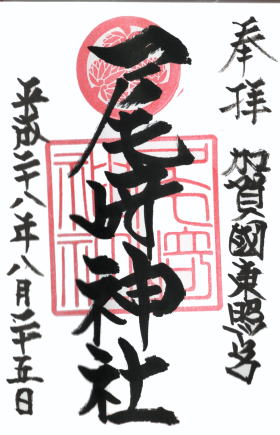 奉拝 加賀國東照宮
尾崎神社
平成二十八年八月二十五日